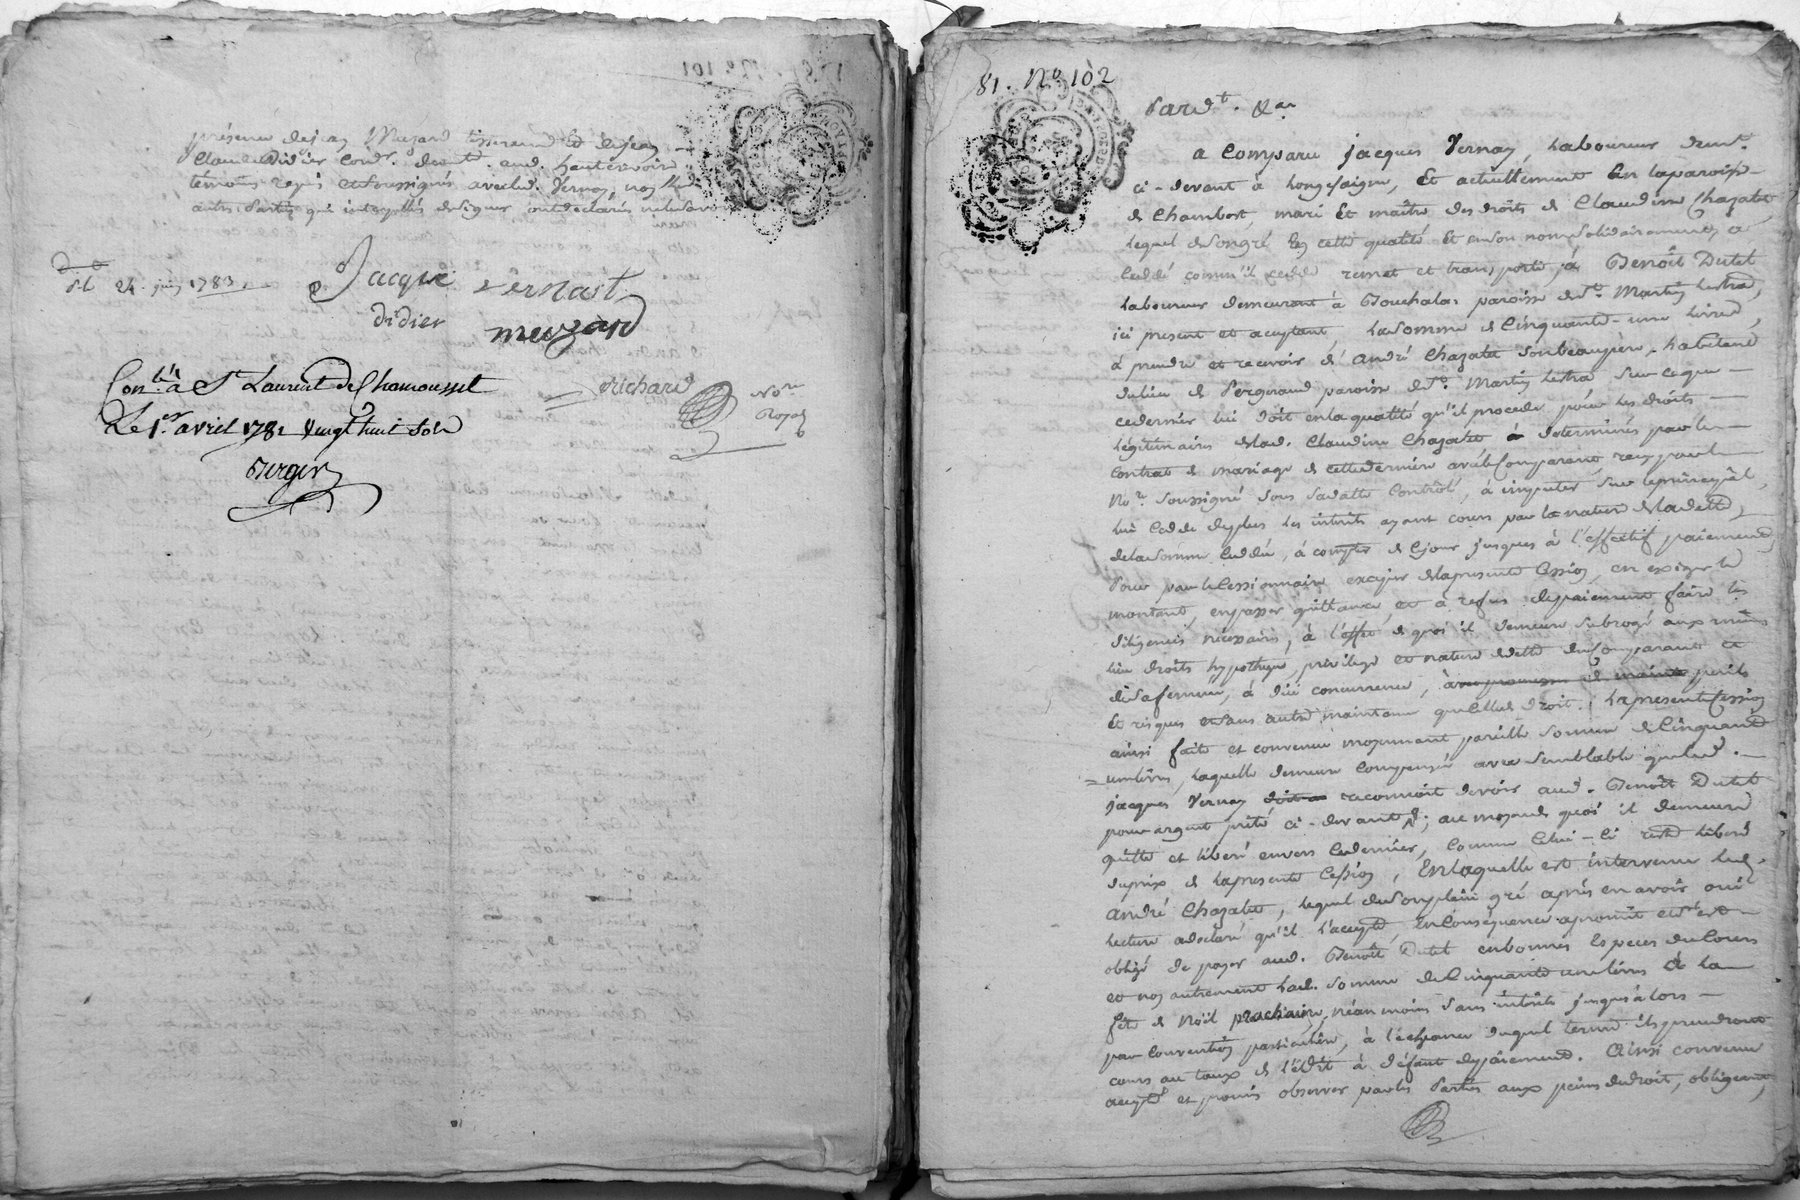 présence de jean Muzard tisserand & de jean
Claude Didier Cord.r demt. aud. hauterivoire
témoins requis et soussignés avec led. Vernay, non les
autres parties qui interpellés de signer ont déclarés ne le savoir
24. juin 1783.
Jacque vernast
didier meuzard
Richard
No.re
Royal
Con.lé à St Laurent de Chamousset
Le 1.er avril 1781 Vingt huit sols
Berger
81. No 102
Pardt. &ar
a Comparu jacques Vernay, Laboureur demt.
ci-devant à Longesaigne, Et actuellement En la paroisse
de Chambost, mari Et maître des droits de Claudine Chazalet
lequel de son gré En cette qualité Et en son nom solidairement a
Cuddé comm'il cedde remet et transporte, à Benoît Dutel
Laboureur demeurant à Bouchala, paroisse de St. Martin Lestra,
ici present et acceptant, La Somme de Cinquante-une livres,
à prendre et recevoir d'andré Chazalet son beaupere, habitant
du lieu de paroisse de St. Martin Lestra Sur ce que
ce dernier lui doit en la qualité qu'il procede pour les droits
légitimaires de lad. Claudine Chazalet determinés par le
contrat de mariage de cette derniere avec le Comparant, reçu par le
No.re soussigné sous sa datte Contrôlé, à imputer sur le principal,
lui Cedde de plus les intérêts ayant cours par la nature de la dette,
de la somme Cuddée, à compter de Ce jour jusques à l'effectif paiement,
Pour par le Cessionnaire exiger de la presente Cession, en exiger le
montant, en passer quittance, et à refus de paiement faire les
diligences nécessaires, à l'effet de quoi il demeure subrogé aux mêmes
lieu droits hypotheque, privilege et nature de dette du Comparant et
de sa femme, à düe concurrence, périls
Et risques et sans autre maintenue que Celle de droit. La presente Cession
ainsi faite et convenue moyennant pareille somme de Cinquante
une livres, laquelle demeure Compensée avec semblable que led.
jacques Vernay reconnoit devoir aud. Benoît Dutel
pour argent prêté ci-devant; au moyen de quoi il demeure
quitte et libéré envers ce dernier, Comme Celui-ci reste libéré
du prix de la presente Cession, En laquelle est intervenu led.
andré Chazalet, lequel de son plein gré après en avoir oui
lecture a declaré qu'il l'accepte, En Conséquence a promit et s'est
obligé de payer aud. Benoît Dutel en bonnes Especes du Cours
et non autrement lad. Somme de Cinquante une livres à la
fête de Noël prochaine, néanmoins sans intérêts jusqu'alors
par Convention particulière, à l'échéance duquel terme ils prendront
cours au taux de l'Edit à défaut de paiement. Ainsi convenu
accepté et promis observer par les Parties aux peines de droit, obligeant,